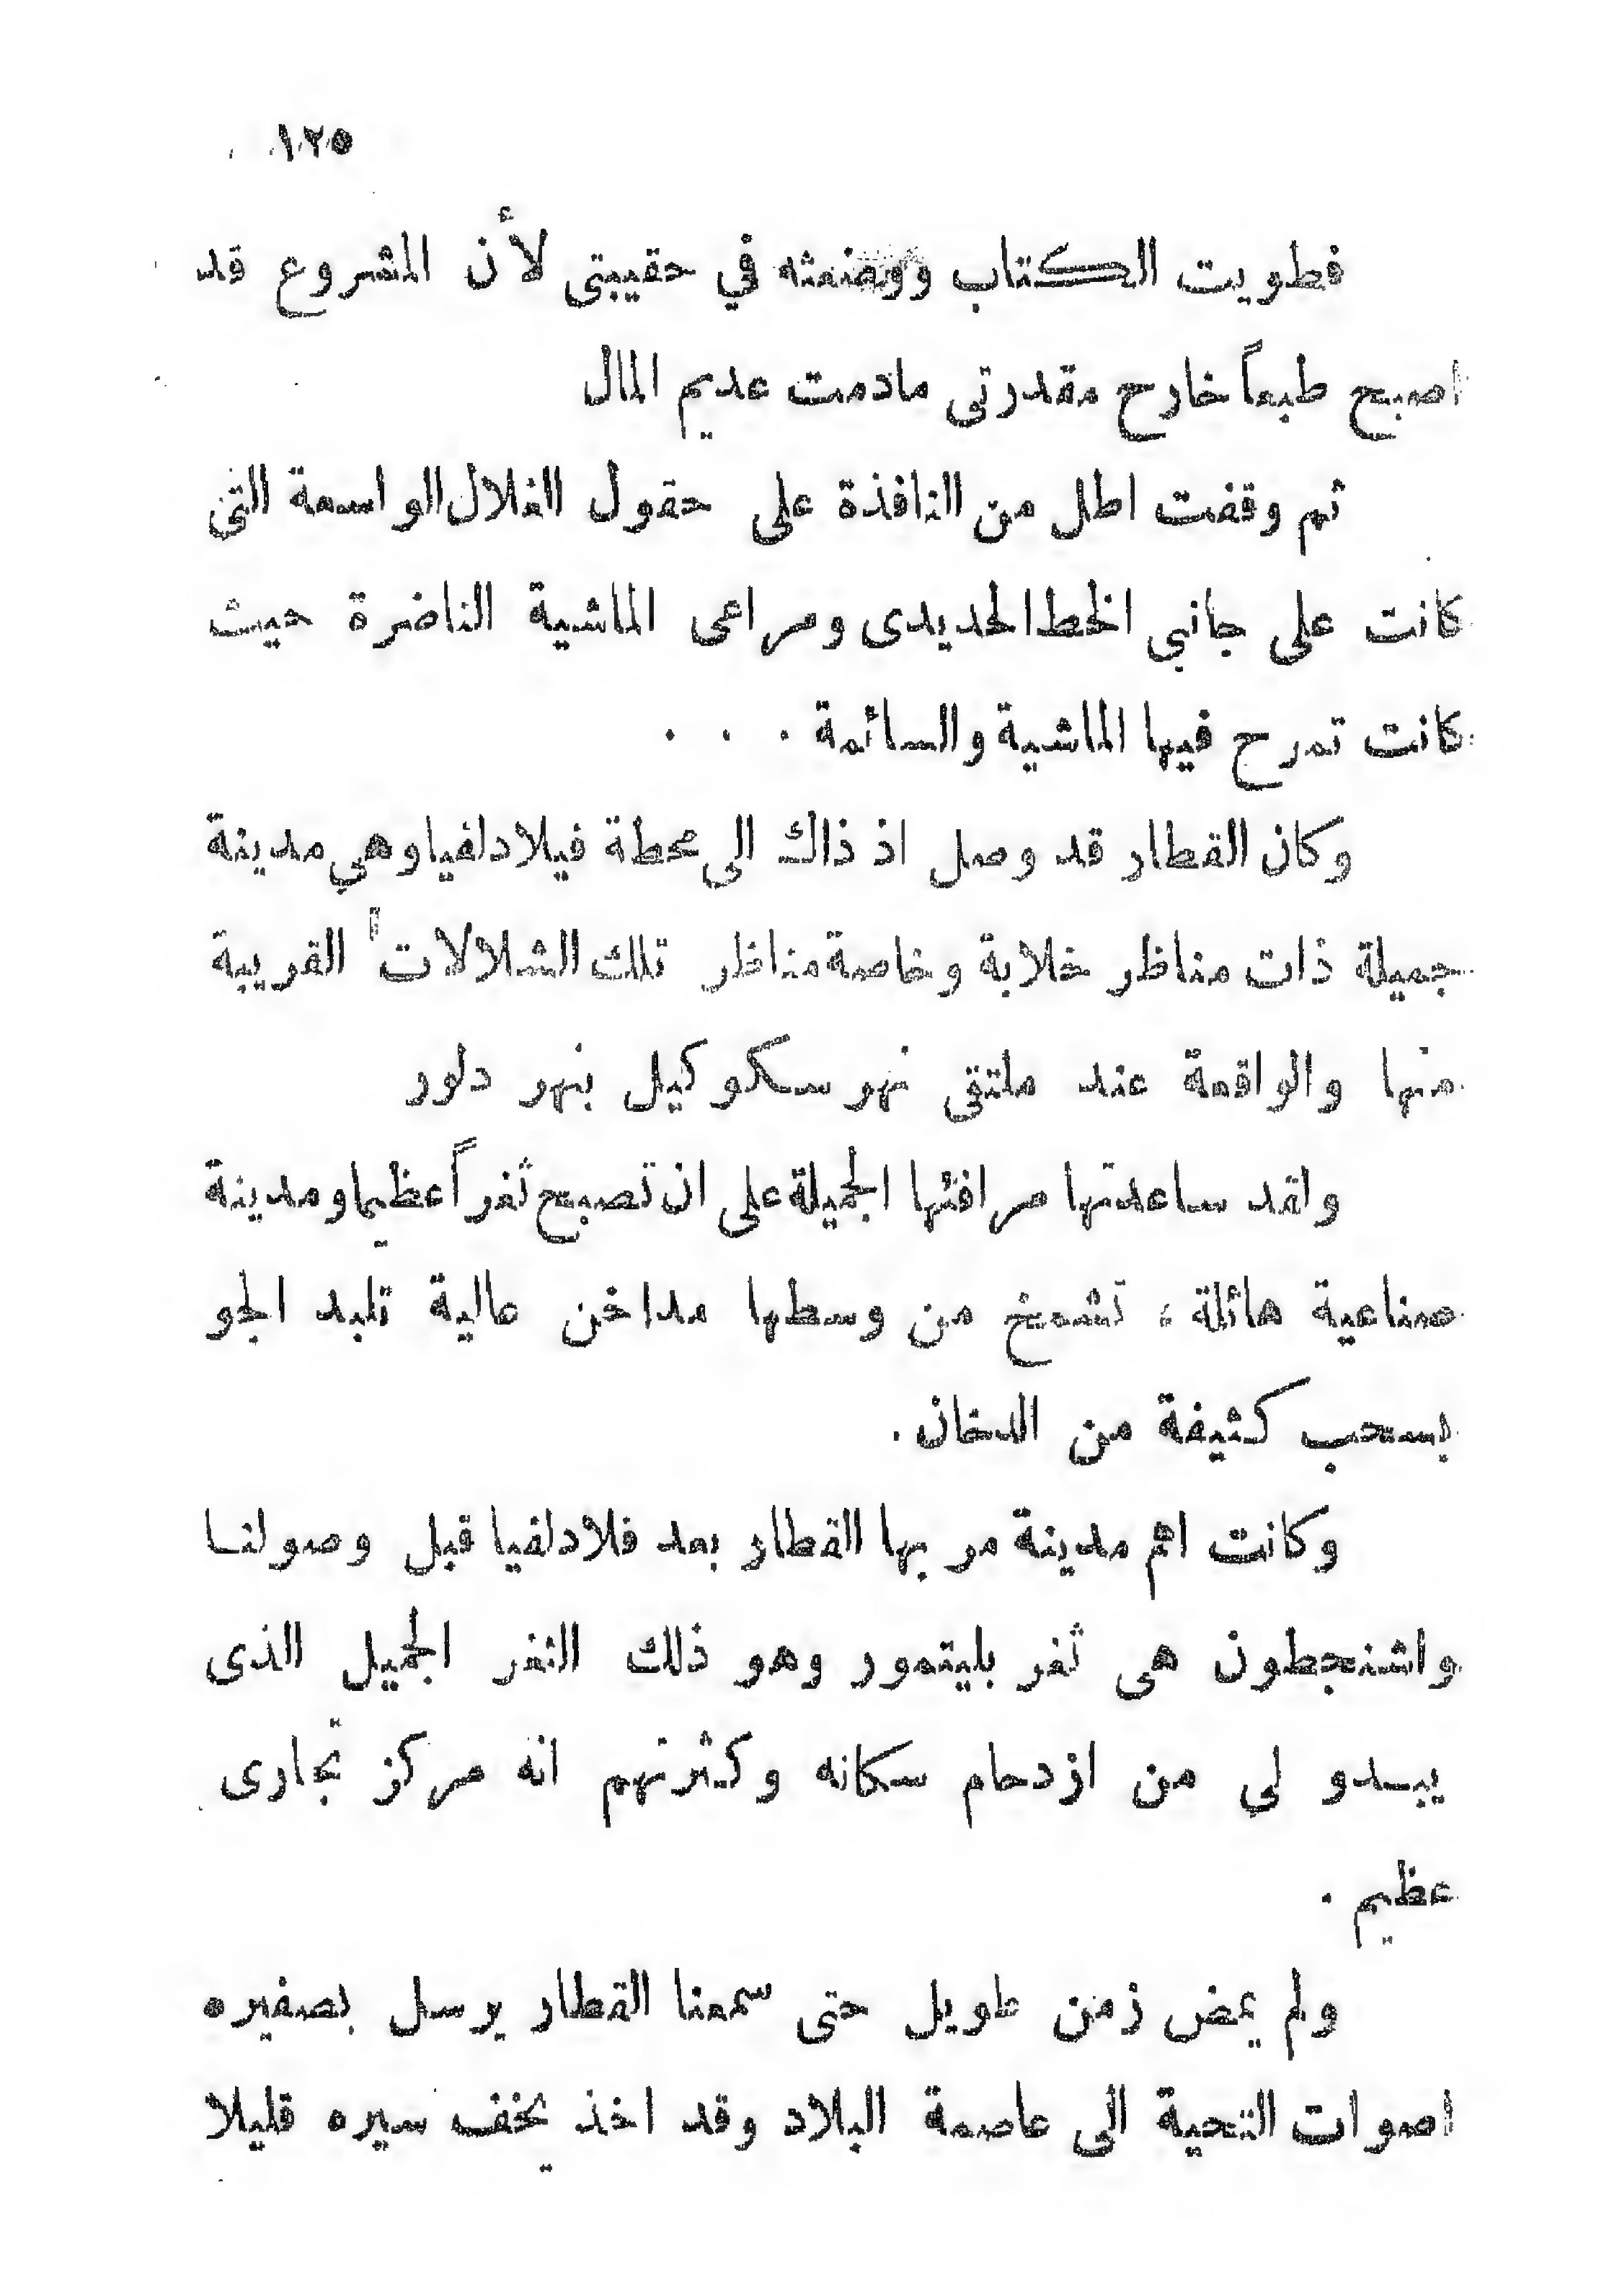 ١٢٥
فطويت الكتاب ووضعته في حقيبتى لأن المشروع قد
اصبح طبعاً خارج مقدرتى مادمت عديم المال
ثم وقفت اطل من النافذة على حقول الغلال الواسعة التى
كانت على جانبي الخط الحديدى ومراعى الماشية الناضرة حيث
كانت تمرح فيها الماشية والسائمة . . .
وكان القطار قد وصل اذ ذاك الى محطة فيلادلفيا وهي مدينة
جميلة ذات مناظر خلابة وخاصة مناظر تلك الشلالات القريبة
منها والواقعة عند ملتقى نهر سكوكيل بنهر دلور
ولقد ساعدتها مرافئها الجميلة على ان تصبح ثغراً عظيما ومدينة
صناعية هائلة ، تشمخ من وسطها مداخن عالية تلبد الجو
بسحب كثيفة من الدخان .
وكانت اهم مدينة مر بها القطار بعد فلادلفيا قبل وصولنا
واشنجطون هى ثغر بليتمور وهو ذلك الثغر الجميل الذى
يبدو لي من ازدحام سكانه وكثرتهم انه مركز تجارى
عظيم .
ولم يمض زمن طويل حتى سمعنا القطار يرسل بصفيره
اصوات التحية الى عاصمة البلاد وقد اخذ يخفف سيره قليلا